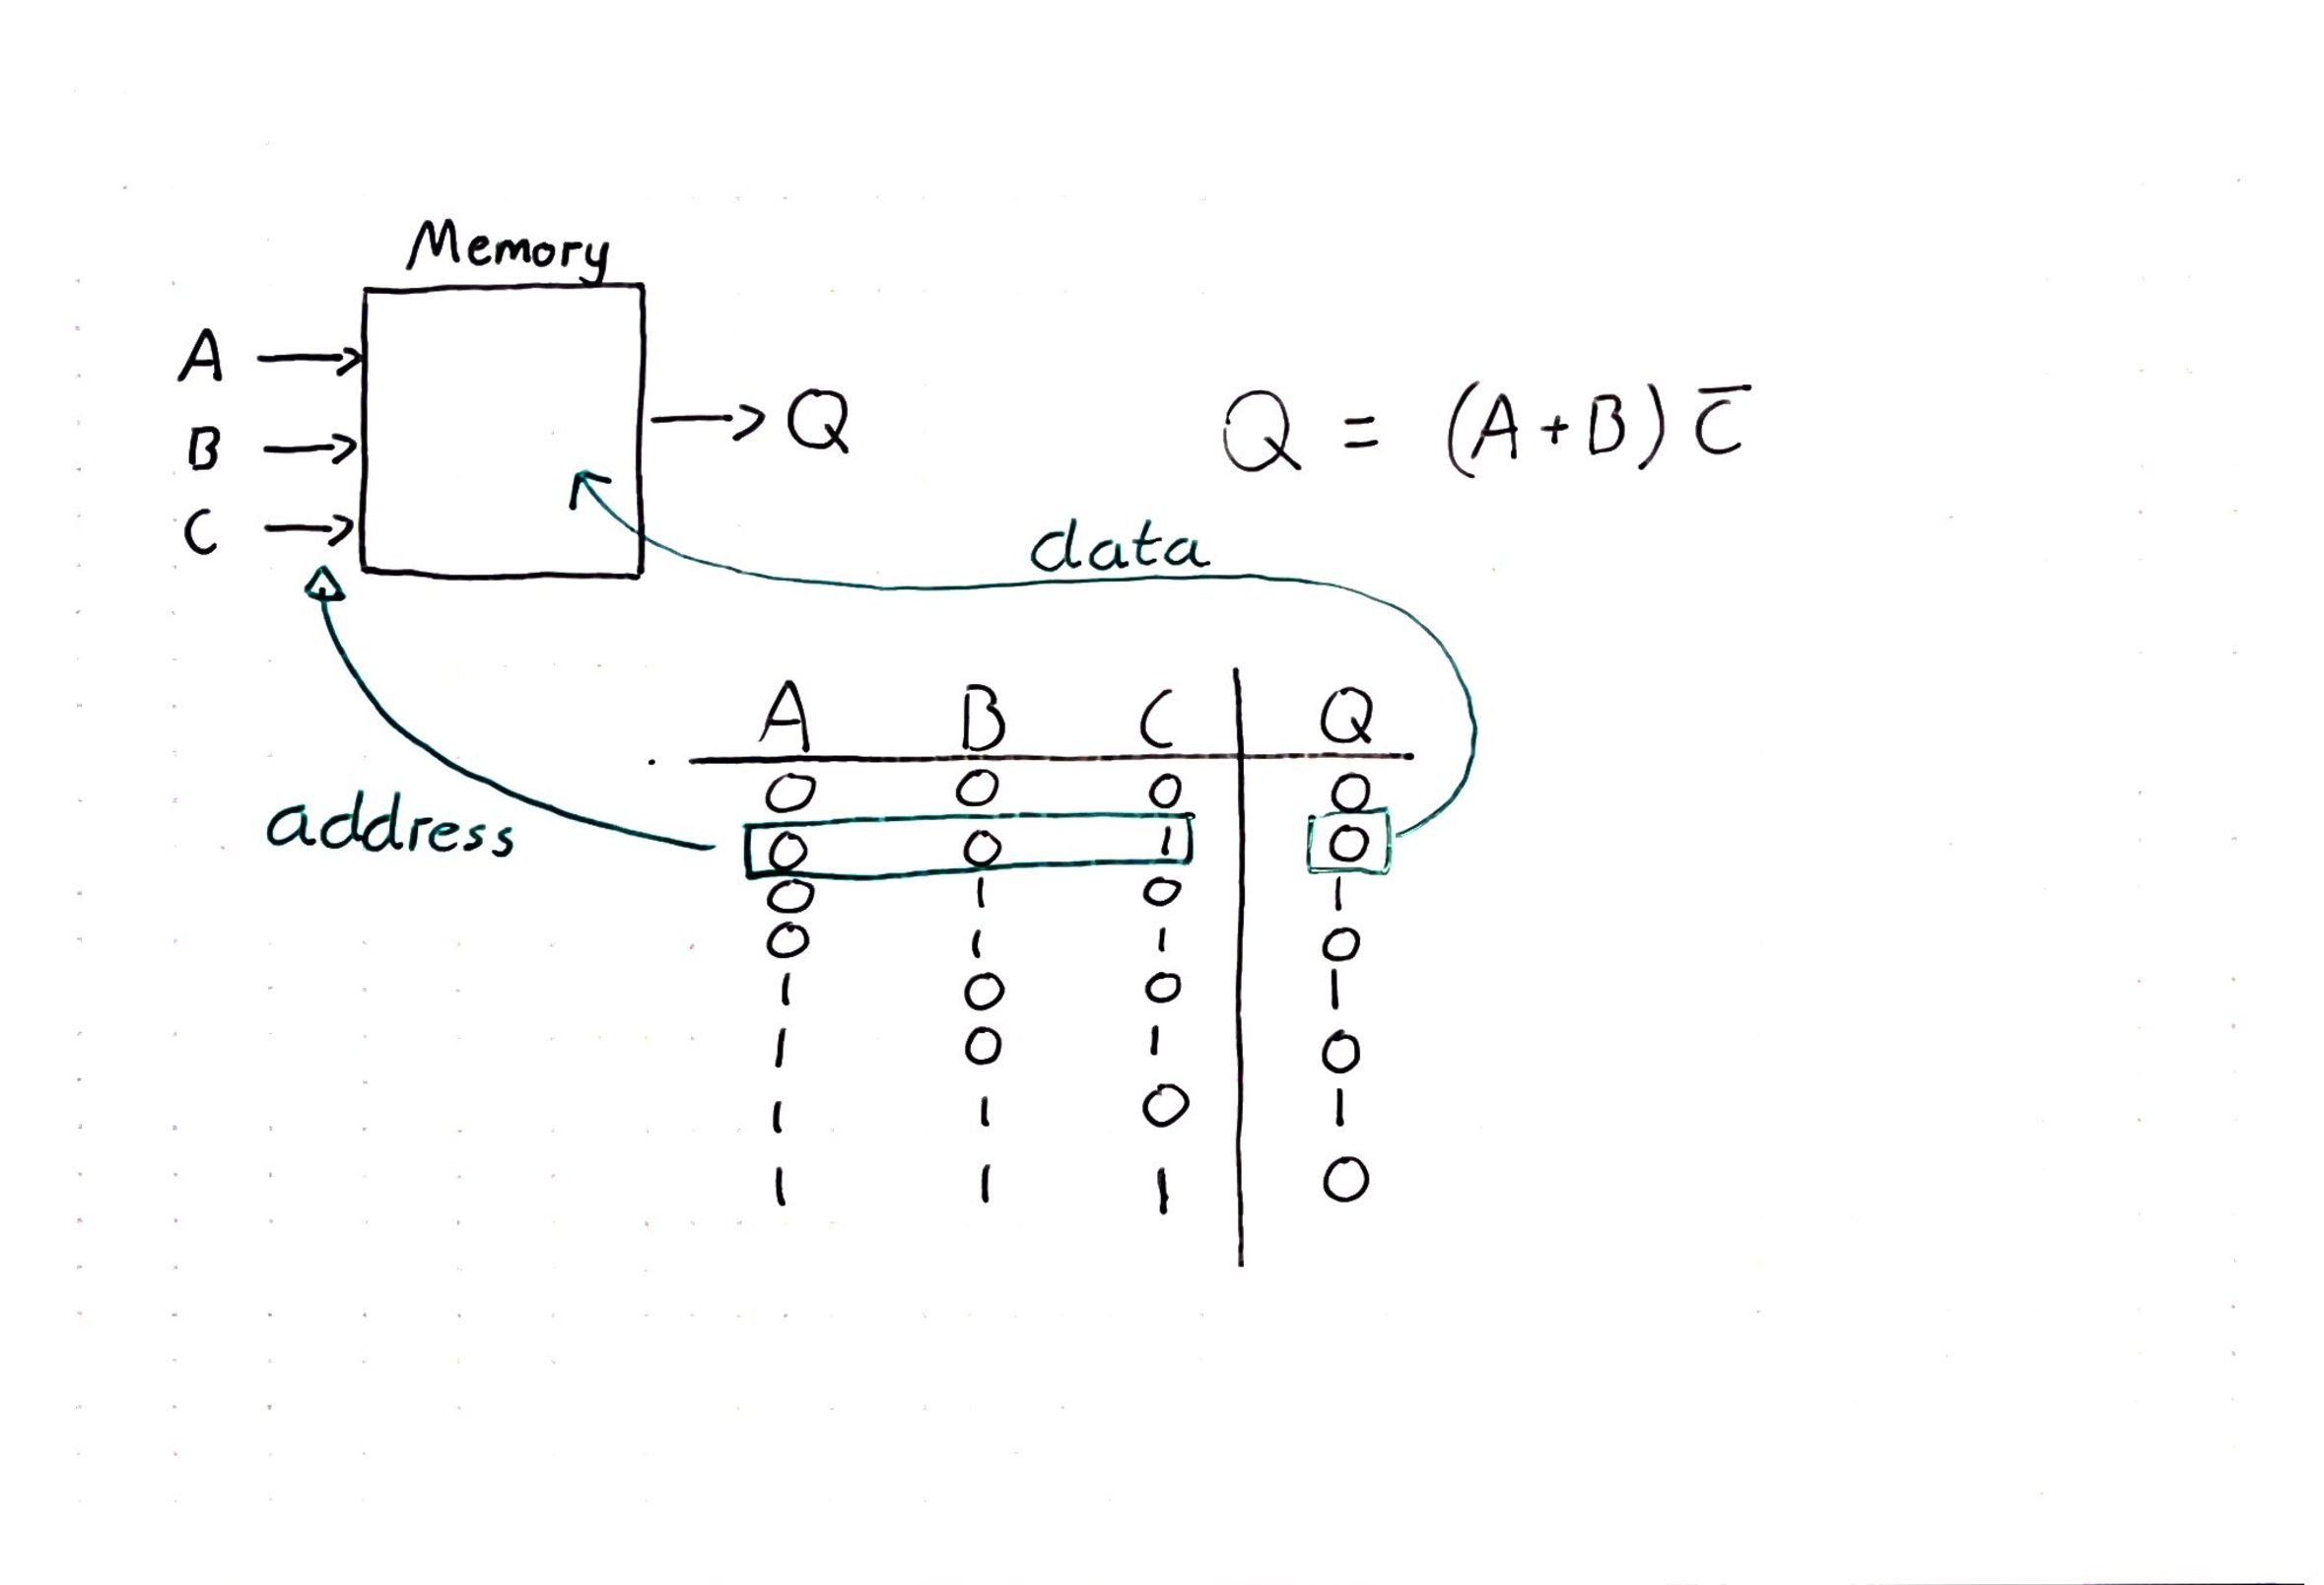 Memory
A
B
C
Q
Q = (A+B) C̅
data
address
A B C Q
0 0 0 0
0 0 1 0
0 1 0 1
0 1 1 0
1 0 0 1
1 0 1 0
1 1 0 1
1 1 1 0